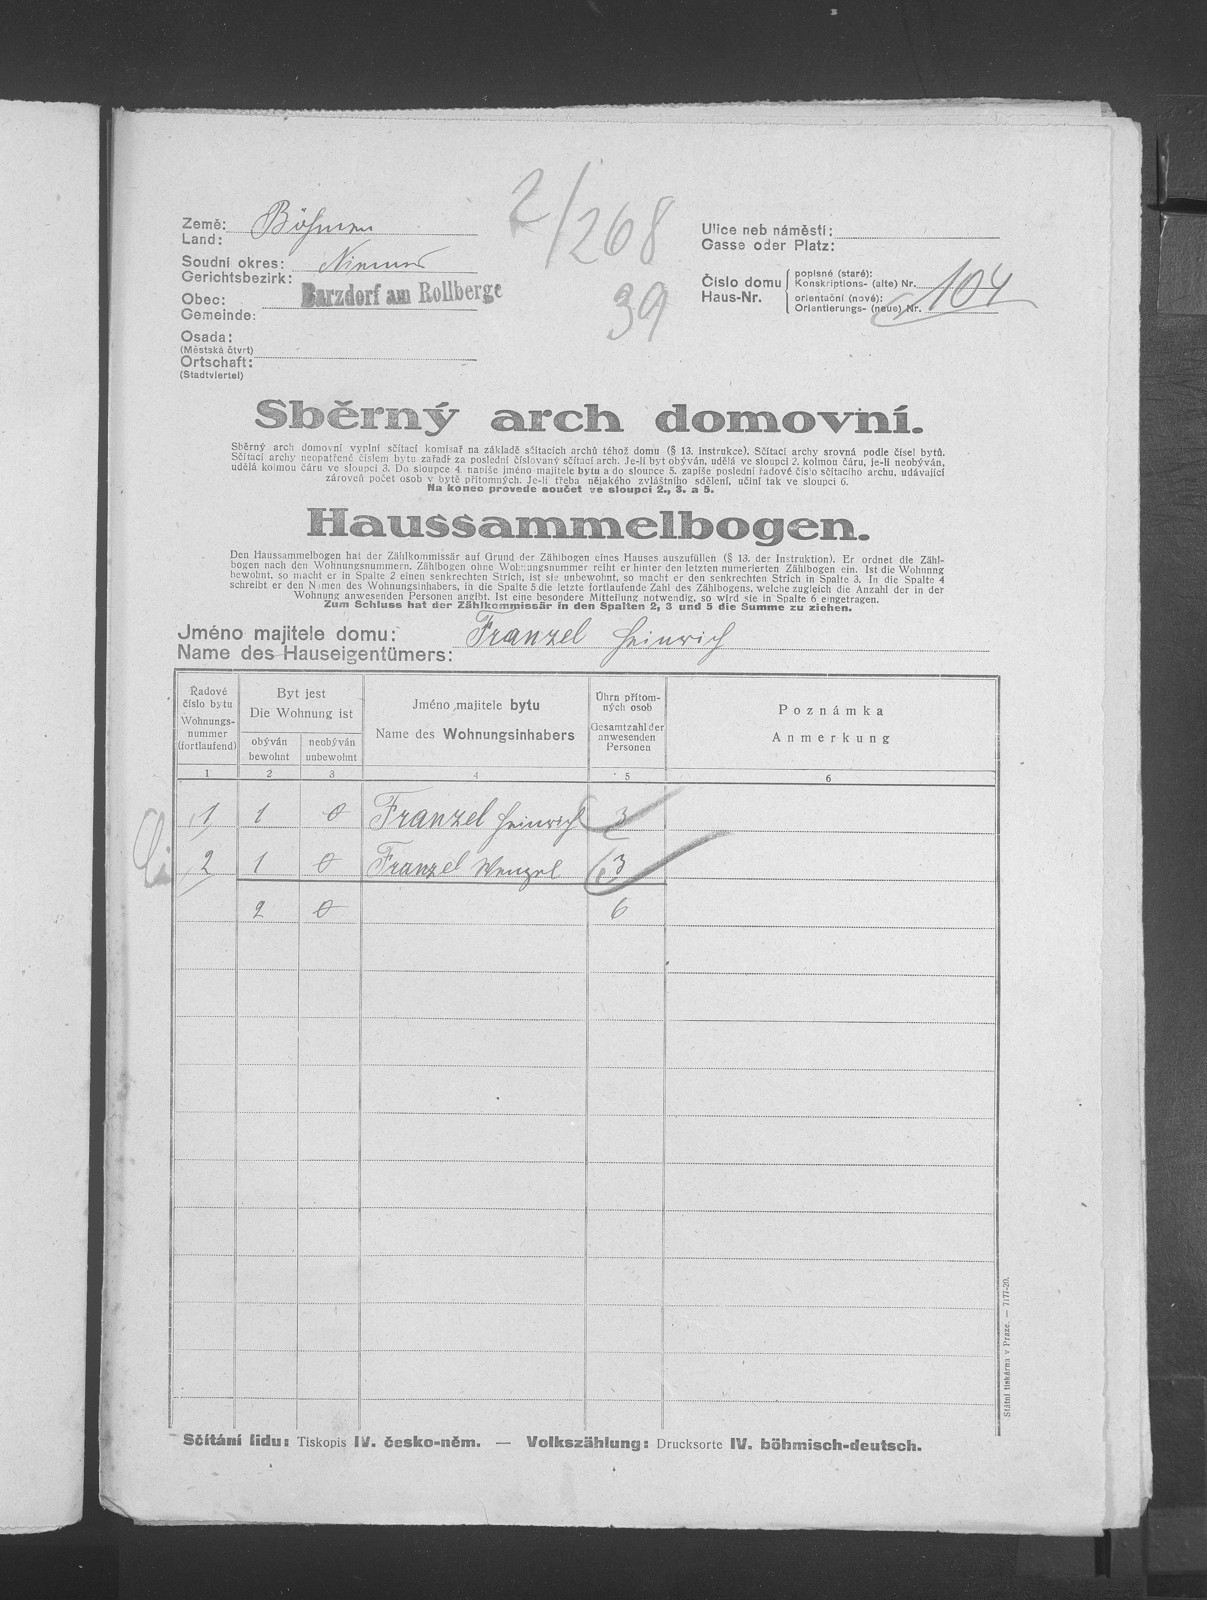 2/268
39
Země: Böhmen
Land:
Soudní okres: Niemes
Gerichtsbezirk:
Obec: Barzdorf am Rollberge
Gemeinde:
Osada:
(Městská čtvrt)
Ortschaft:
(Stadtviertel)
Ulice neb náměstí:
Gasse oder Platz:
Číslo domu popisné (staré):
Konskriptions- (alte) Nr. 104
Haus-Nr. orientační (nové):
Orientierungs- (neue) Nr.
Sběrný arch domovní.
Sběrný arch domovní vyplní sčítací komisař na základě sčítacích archů téhož domu (§ 13. instrukce). Sčítací archy srovná podle čísel bytů.
Sčítací archy neopatřené číslem bytu zařadí za poslední číslovaný sčítací arch. Je-li byt obýván, udělá ve sloupci 2. kolmou čáru, je-li neobýván,
udělá kolmou čáru ve sloupci 3. Do sloupce 4. napíše jméno majitele bytu a do sloupce 5. zapíše poslední řadové číslo sčítacího archu, udávající
zároveň počet osob v bytě přítomných. Je-li třeba nějakého zvláštního sdělení, učiní tak ve sloupci 6.
Na konec provede součet ve sloupci 2., 3. a 5.
Haussammelbogen.
Den Haussammelbogen hat der Zählkommissär auf Grund der Zählbogen eines Hauses auszufüllen (§ 13. der Instruktion). Er ordnet die Zähl-
bogen nach den Wohnungsnummern. Zählbogen ohne Wohnungsnummer reiht er hinter den letzten numerierten Zählbogen ein. Ist die Wohnung
bewohnt, so macht er in Spalte 2 einen senkrechten Strich, ist sie unbewohnt, so macht er den senkrechten Strich in Spalte 3. In die Spalte 4
schreibt er den Namen des Wohnungsinhabers, in die Spalte 5 die letzte fortlaufende Zahl des Zählbogens, welche zugleich die Anzahl der in der
Wohnung anwesenden Personen angibt. Ist eine besondere Mitteilung notwendig, so wird sie in Spalte 6 eingetragen.
Zum Schluss hat der Zählkommissär in den Spalten 2, 3 und 5 die Summe zu ziehen.
Jméno majitele domu: Franzel Heinrich
Name des Hauseigentümers:
Řadové
číslo bytu
Wohnungs-
nummer
(fortlaufend)
Byt jest
Die Wohnung ist
obýván
bewohnt
neobýván
unbewohnt
Jméno majitele bytu
Name des Wohnungsinhabers
Úhrn přítom-
ných osob
Gesamtzahl der
anwesenden
Personen
Poznámka
Anmerkung
1 2 3 4 5 6
1 1 0 Franzel Heinrich 3
2 1 0 Franzel Wenzel 3
2 0 6
Státní tiskárna v Praze. — 7177-20.
Sčítání lidu: Tiskopis IV. česko-něm. — Volkszählung: Drucksorte IV. böhmisch-deutsch.